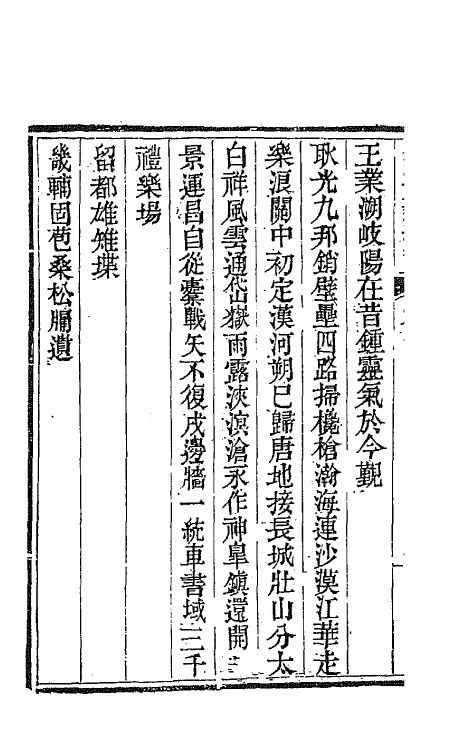 王業溯岐陽在昔鍾靈氣於今覲
耿光九邦銷壁壘四路掃欃槍瀚海連沙漠江華走
樂浪關中初定漢河朔已歸唐地接長城壯山分太
白祥風雲通岱嶽雨露浹溟滄永作神臯鎮還開三
景運昌自從櫜戰矢不復戍邊牆一統車書域三千
禮樂場
留都雄雉堞
畿輔固苞桑松關遺